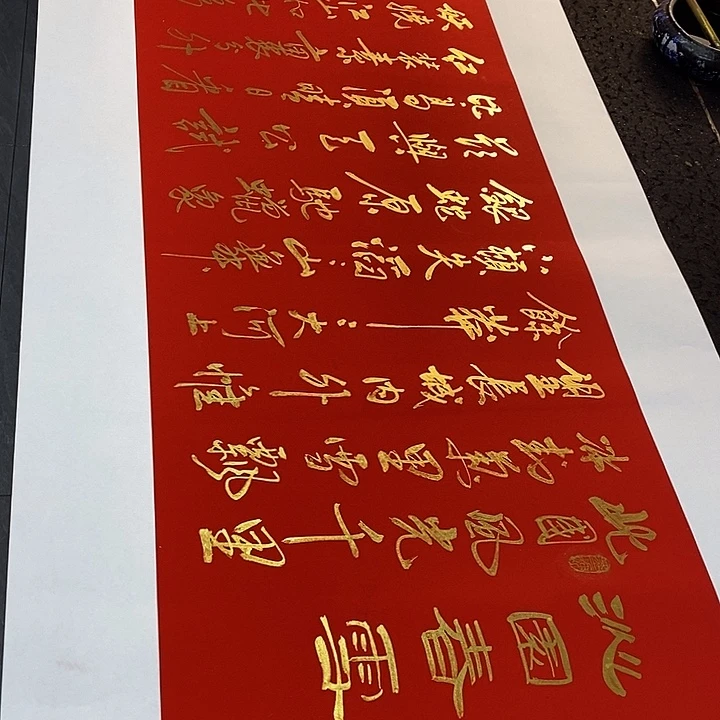 沁園春雪
北國風光千里
冰封萬里雪飄
望長城內外惟
餘莽〻大河上
下頓失滔〻山舞
銀蛇原馳蠟象
欲與天公試
比高須晴日看
紅裝素裹分外
嬈江山如此多